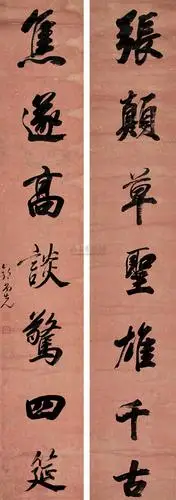 張顛草聖雄千古
焦遂高談驚四筵